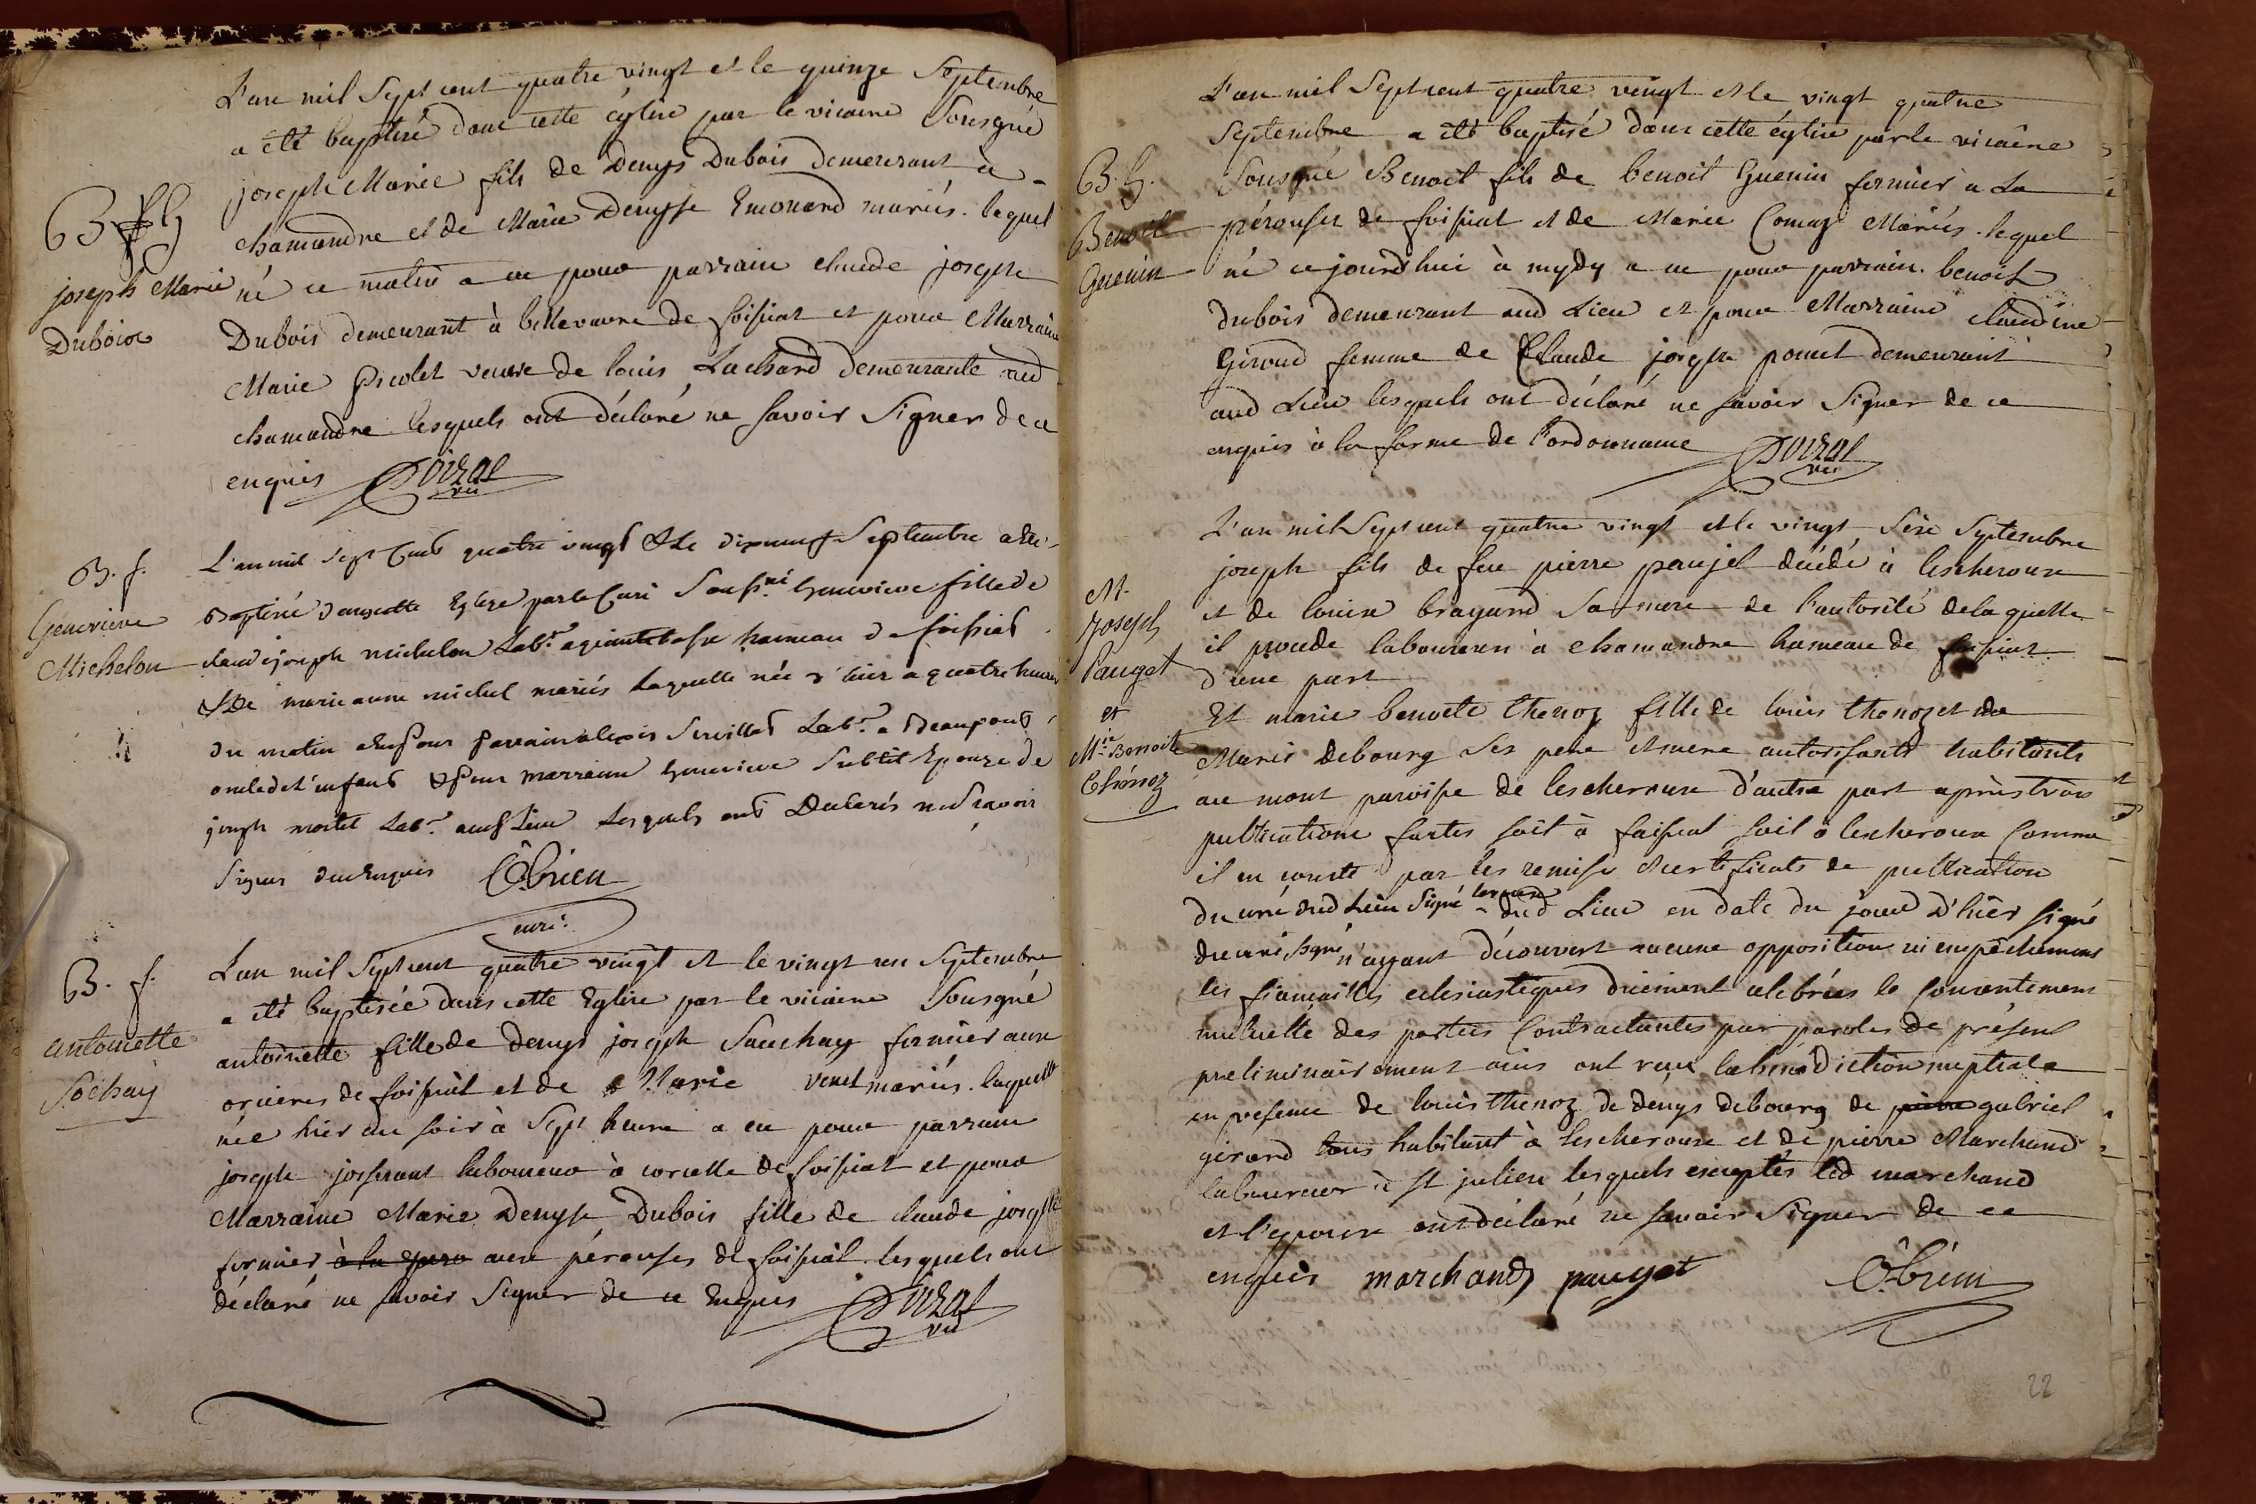 L'an mil Sept cent quatre vingt et le quinze Septembre
a été baptisé dans cette église par le vicaire Sousgné
joseph Marie fils de Denys Dubois demeurant à
chamandre et de Marie Denyse Emonard mariés. lequel
né ce matin a eu pour parrain claude joseph
Dubois demeurant à bellevavre de foisiat et pour Marraine
Marie Picolet veuve de louis Lachard demeurante aud
chamandre lesquels ont déclaré ne savoir Signer de ce
enquis
vic
B
joseph Marie
Dubois
B. f.
Genevieve
Michelon
L'an mil sept Cent quatre vingt & Le dixneuf Septembre a été
Baptisée dans cette Eglise par le Curé Soussné Genevieve fille de
claude joseph michelon Labr a hameau de foissiat
& De marie anne michel mariés Laquelle née d'hier a quatre heures
du matin a eu pour Parrain Labr a Beaupont
oncle de L'enfant & Pour marraine Genevieve Subtil Epouze de
joseph Labr aud Lieu Lesquels ont Declarés ne Sçavoir
Signer de ce Enquis O'brien
curé
B. f.
antoinette
Sochay
L'an mil Sept cent quatre vingt et le vingt un Septembre
a été baptisée dans cette Eglise par le vicaire Sousgné
antoinette fille de Denys joseph Sauchay fermier aux
orcieres de foisiat et de Marie venet mariés. laquelle
née hier au soir à Sept heure a eu pour parrain
joseph josserant laboureur à corcelle de foisiat et pour
Marraine Marie Denyse Dubois fille de claude joseph
fermier à la aux pérouses de foisiat. lesquels ont
déclaré ne savoir Signer de ce Enquis
vic
B. G.
Benoit
Guenin
L'an mil Sept cent quatre vingt et le vingt quatre
Septembre a été baptisé dans cette église par le vicaire
Sousgné Benoit fils de benoit Guenin fermier a La
pérouses de foisiat et de Marie Comas Mariés. lequel
né ce jourd'hui à mydy a eu pour parrain. benoit
Dubois demeurant aud Lieu et pour Marraine claudine
Giroud femme de Claude joseph poncet demeurant
aud Lieu lesquels ont déclaré ne savoir Signer de ce
enquis à la forme de l'ordonnance
vic
M.
Joseph
Pauget
et
Mie Benoite
Thénoz
L'an mil Sept cent quatre vingt et le vingt Sixe Septembre
joseph fils de feu pierre paujet décédé à lescheroux
et de louise brayard Sa mere de l'autorité de laquelle
il procede laboureur à chamandre hameau de foisiat
d'une part
Et marie benoite thenoz fille de louis thenoz et de
Marie Debourg Ses pere et mere autorisants habitants
au mont paroisse de lescheroux d'autre part après trois
publications faites soit à foisiat soit à lescheroux Comme
il en conste par les remise et certificats de publication
du curé dud Lieu Signé dud Lieu en date du jour d'hier signé
du curé signé n'ayant découvert aucune opposition ni empêchement
les fiançailles eclesiastiques duement celebrées le Consentement
mutuelle des parties Contractantes par paroles de présent
preliminairement ouis ont reçu la bénédiction nuptiale
en presence de louis thenoz de denys debourg de pierre gabriel
girard tous habitant à lescheroux et de pierre Marchand
laboureur à st julien lesquels exceptés led marchand
et l'epoux ont déclaré ne savoir Signer de ce
enquis marchand pauget O'brien
22